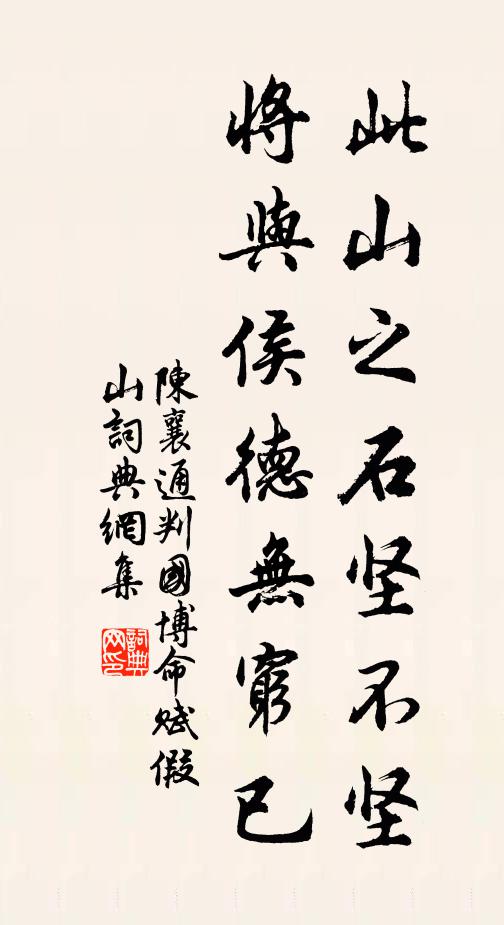 此山之石坚不坚
將與侯德無窮已
陳襄通判國博命賦假
山詞典網集
詞典网印